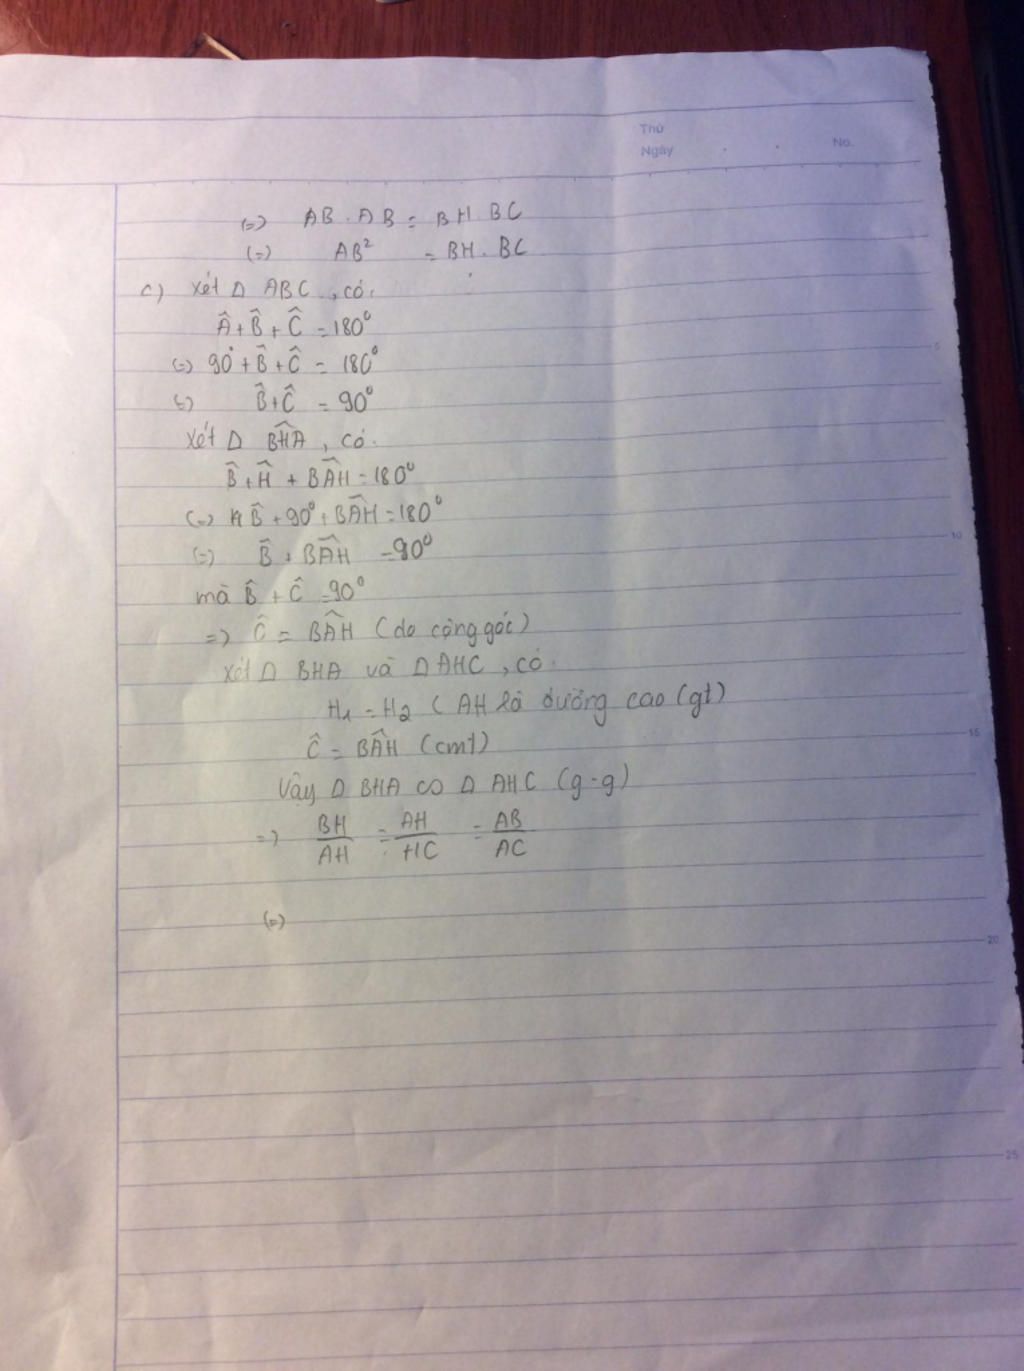 Thứ
Ngày . . No.
(=) AB . AB = BH . BC
(=) AB² = BH . BC
c) Xét Δ ABC , có:
Â + B̂ + Ĉ = 180⁰
(=) 90⁰ + B̂ + Ĉ = 180⁰
(=) B̂ + Ĉ = 90⁰
Xét Δ BĤA , có:
B̂ + Ĥ + BÂH = 180⁰
(=) B̂ + 90⁰ + BÂH = 180⁰
(=) B̂ + BÂH = 90⁰
mà B̂ + Ĉ = 90⁰
=) Ĉ = BÂH (do cộng góc)
Xét Δ BHA và Δ AHC , có:
H₁ = H₂ ( AH là đường cao (gt)
Ĉ = BÂH (cmt)
Vậy Δ BHA ∽ Δ AHC (g-g)
=) BH/AH = AH/HC = AB/AC
(=)
5
10
15
20
25